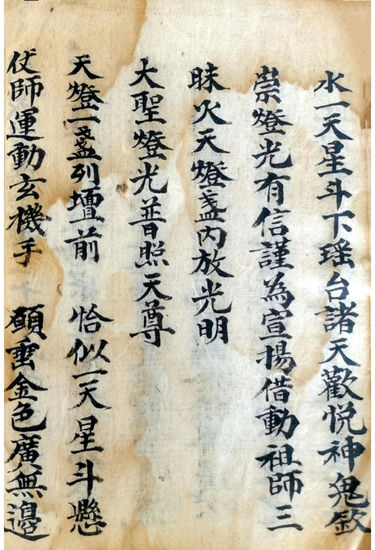 水一天星斗下瑶台諸天歡悦神鬼欽
崇燈光有信謹為宣揚借動祖師三
昧火天燈盞内放光明
大聖燈光普照天尊
天燈一盞列壇前 恰似一天星斗懸
仗師運動玄機手 願垂金色廣無邊